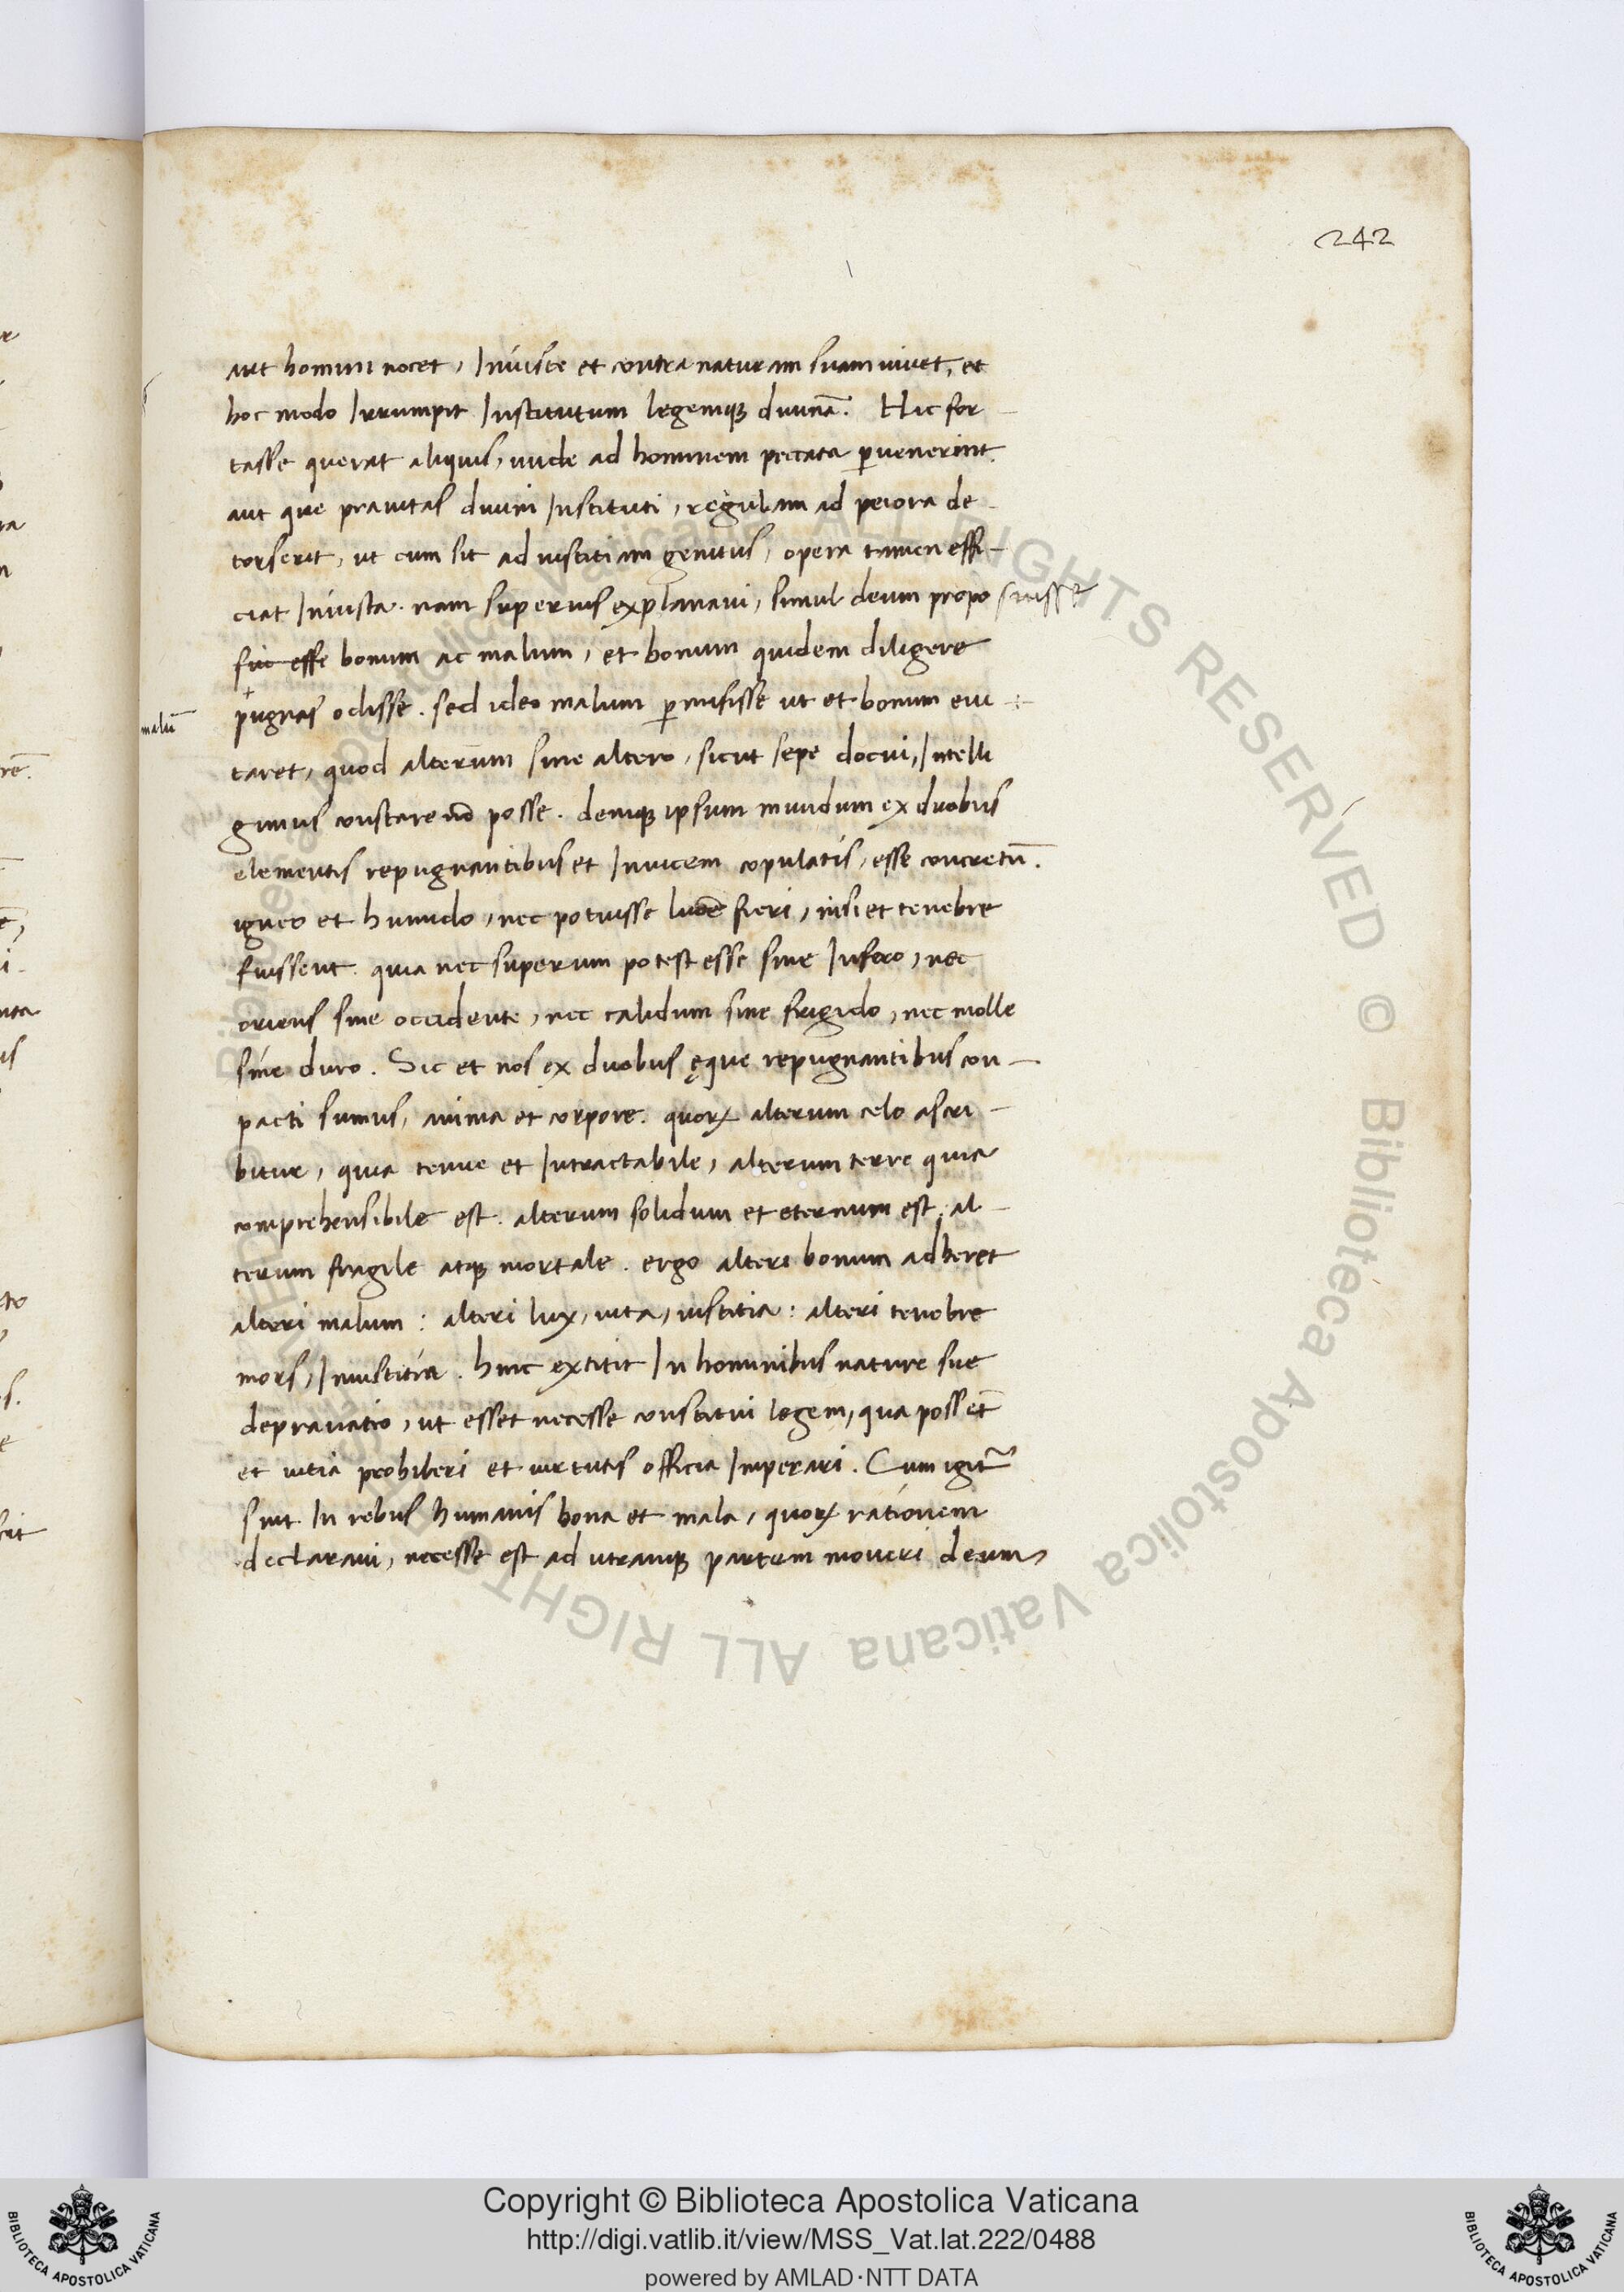 242
aut homini nocet, Iniuste et contra naturam suam uiuet, et
hoc modo Irrumpit Institutum legemqꝫ diuinā. Hic for-
tasse querat aliquis, unde ad hominem peccata ꝑuenerint
aut que prauitas diuini Instituti, regulam ad peiora de-
torserit, ut cum sit ad iustitiam genitus, opera tamen effi-
ciat Iniusta. nam superius explanaui, simul deum propo suisse
sui esse bonum ac malum, et bonum quidem diligere
malū pugnas odisse. sed ideo malum ꝑmisisse ut et bonum emi-
taret, quod alterum sine altero, sicut sepe docui, Intelli
gimus constare nō posse. deniqꝫ ipsum mundum ex duobus
elementis repugnantibus et Inuicem copulatis, esse concretū.
igneo et humido, nec potuisse lucē fieri, nisi et tenebre
fuissent. quia nec superum potest esse sine Infero, nec
oriens sine occidente, nec calidum sine frigido, nec molle
sine duro. Sic et nos ex duobus ęque repugnantibus con-
pacti sumus, anima et corpore. quoꝝ alterum celo ascri-
bitur, quia tenue et Intractabile, alterum terre quia
comprehensibile est. alterum solidum et eternum est, al-
terum fragile atqꝫ mortale. ergo alteri bonum adheret
alteri malum: alteri lux, uita, iustitia: alteri tenebre
mors, Iniustitia. hinc extitit In hominibus nature sue
deprauatio, ut esset necesse constitui legem, qua possēt
et uitia prohiberi et uirtutis officia Imperari. Cum igit᷑
sint In rebus humanis bona et mala, quoꝝ rationem
declaraui, necesse est ad utramqꝫ partem moueri deum,
Copyright © Biblioteca Apostolica Vaticana
http://digi.vatlib.it/view/MSS_Vat.lat.222/0488
powered by AMLAD·NTT DATA
BIBLIOTECA APOSTOLICA VATICANA
BIBLIOTECA APOSTOLICA VATICANA